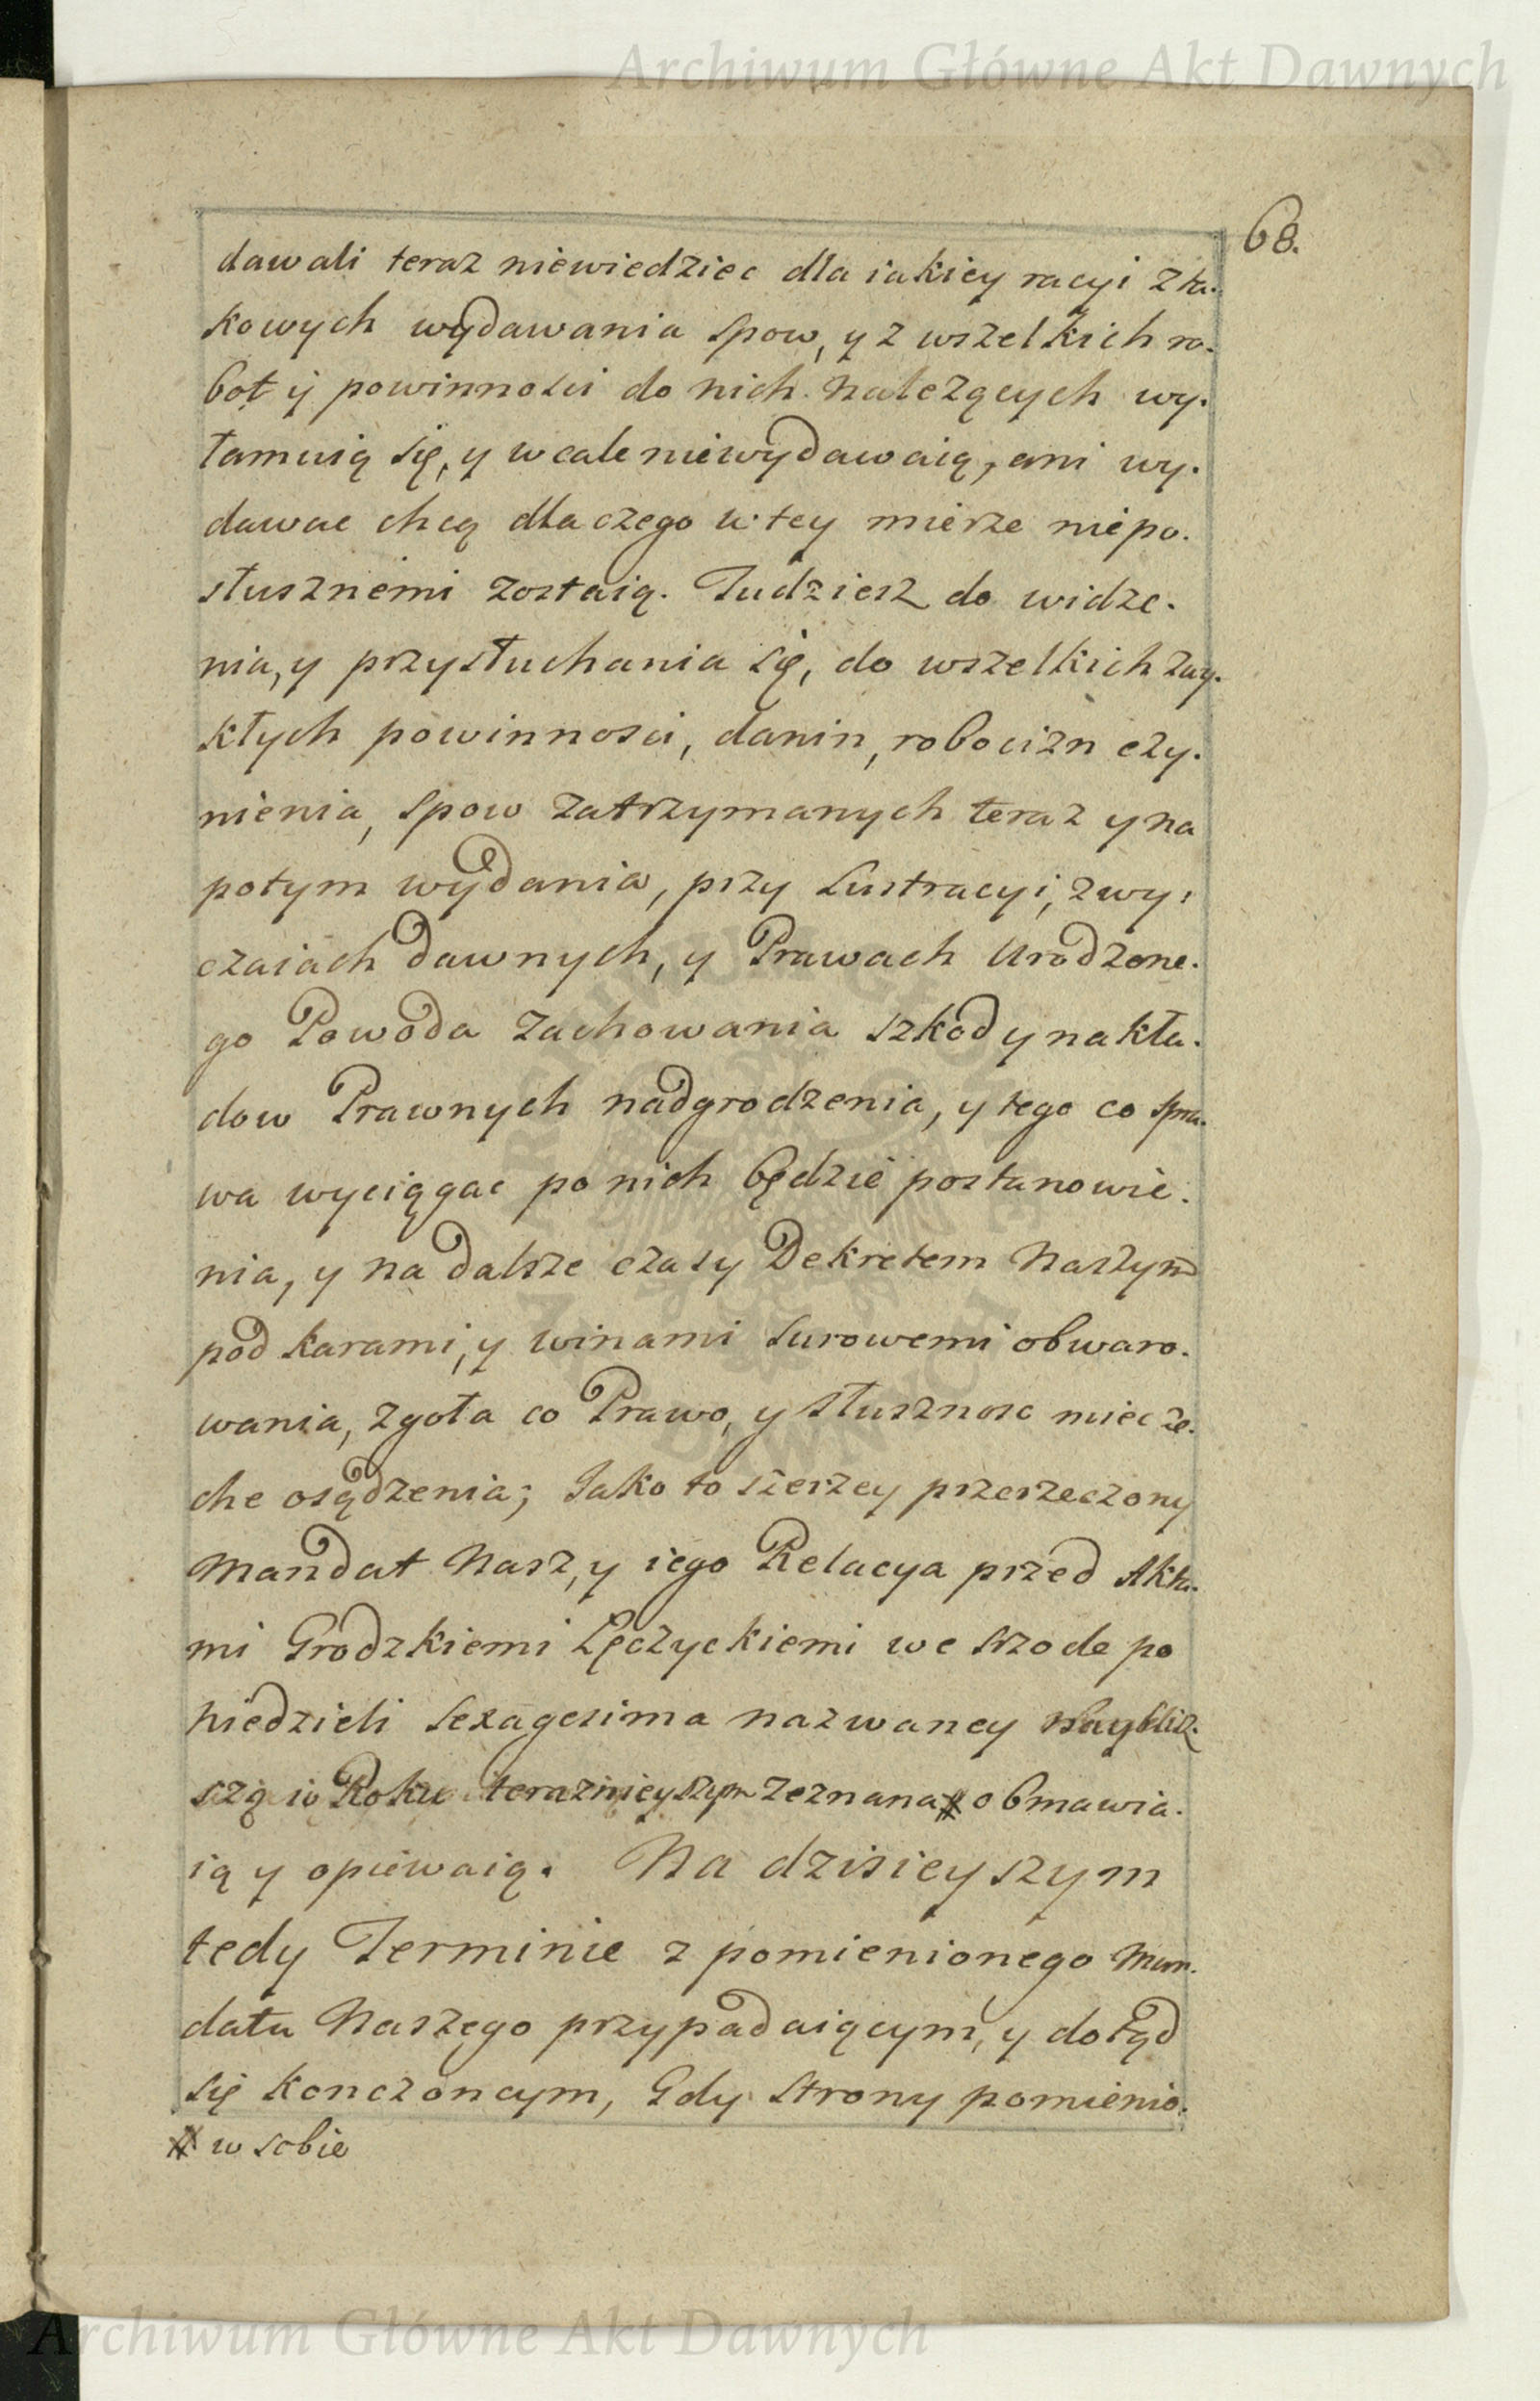 Archiwum Główne Akt Dawnych
68.
dawali teraz niewiedziec dla iakiey racyi z ta.
kowych wydawania spow, y z wszelkich ro.
bot y powinnosci do nich nalezących wy.
łamuią się, y wcale niewydawaią, ani wy.
dawac chcą dla czego w tey mierze niepo.
słusznemi zostaią. Tudziesz do widze.
nia, y przysłuchania się, do wszelkich zwy.
kłych powinnosci, danin, robocizn czy.
nienia, spow zatrzymanych teraz y na
potym wydania, przy Lustracyi, zwy,
czaiach dawnych, y Prawach Urodzone.
go Powoda zachowania szkod y nakła.
dow Prawnych nadgrodzenia, y tego co spra.
wa wyciągac po nich będzie postanowie.
nia, y na dalsze czasy Dekretem Naszym
pod karami, y winami surowemi obwaro.
wania, zgoła co Prawo, y słusznosc miec ze.
che osądzenia; Jako to szerzey przerzeczony
Mandat Nasz, y iego Relacya przed Akta.
mi Grodzkiemi Łęczyckiemi we srzode po
niedzieli sexagesima nazwaney naybliz.
szą w Roku teraznieyszym zeznana # obmawia.
ią y opiewaią. Na dzisieyszym
tedy Terminie z pomienionego Man.
datu Naszego przypadaiącym, y dotąd
się konczoncym, Gdy strony pomienio.
# w sobie
Archiwum Główne Akt Dawnych